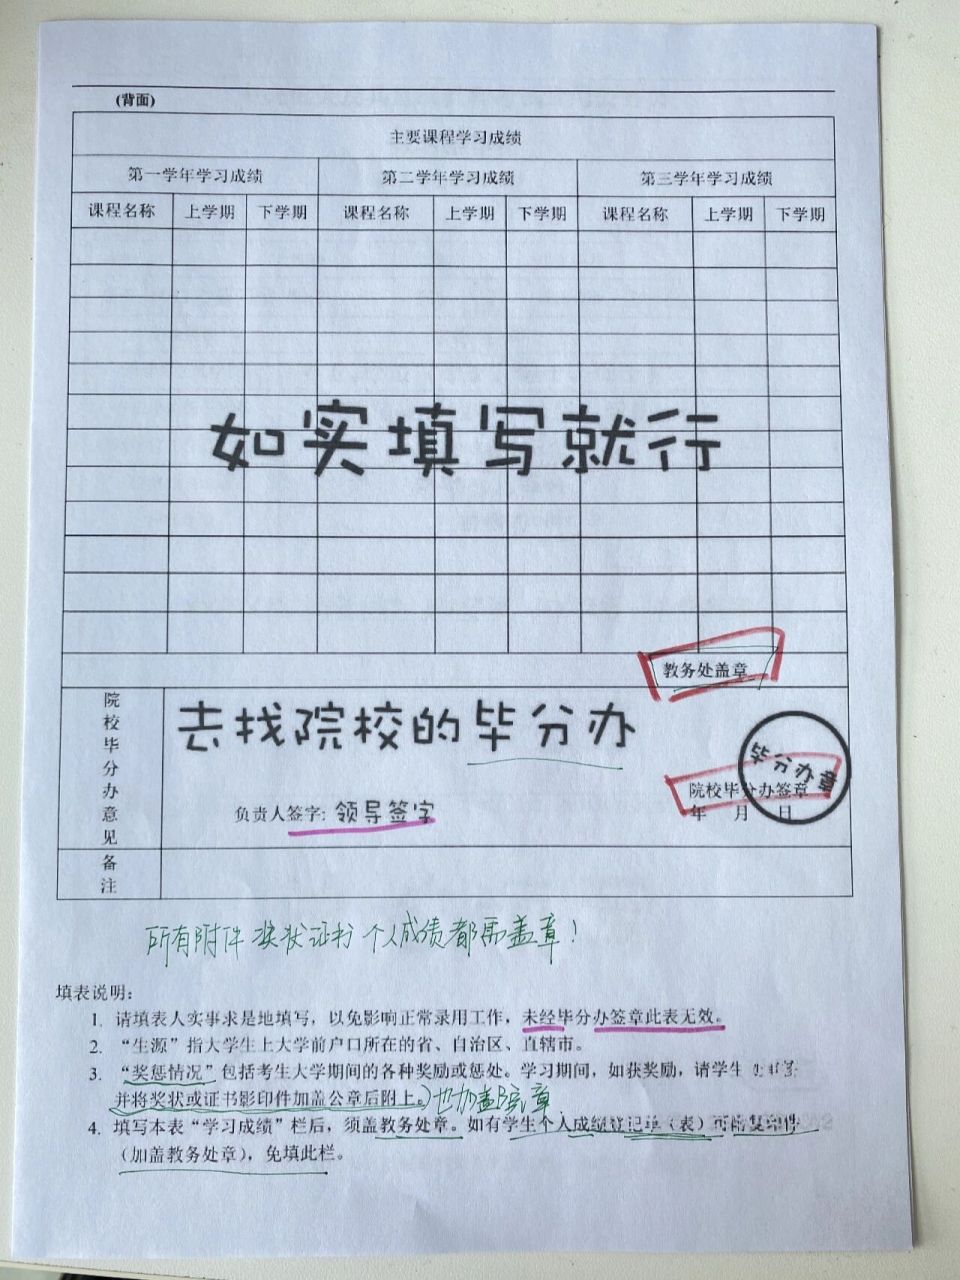 (背面)
主要课程学习成绩
第一学年学习成绩 第二学年学习成绩 第三学年学习成绩
课程名称 上学期 下学期 课程名称 上学期 下学期 课程名称 上学期 下学期
如实填写就行
教务处盖章
院校毕分办意见
去找院校的毕分办
毕分办章
负责人签字: 领导签字
院校毕分办签章
年 月 日
备注
所有附件 奖状证书 个人成绩都需盖章!
填表说明:
1. 请填表人实事求是地填写，以免影响正常录用工作，未经毕分办签章此表无效。
2. “生源”指大学生上大学前户口所在的省、自治区、直辖市。
3. “奖惩情况”包括考生大学期间的各种奖励或惩处。学习期间，如获奖励，请学生
并将奖状或证书影印件加盖公章后附上。)也加盖院章
4. 填写本表“学习成绩”栏后，须盖教务处章。如有学生个人成绩登记单（表）可附复印件
（加盖教务处章），免填此栏。